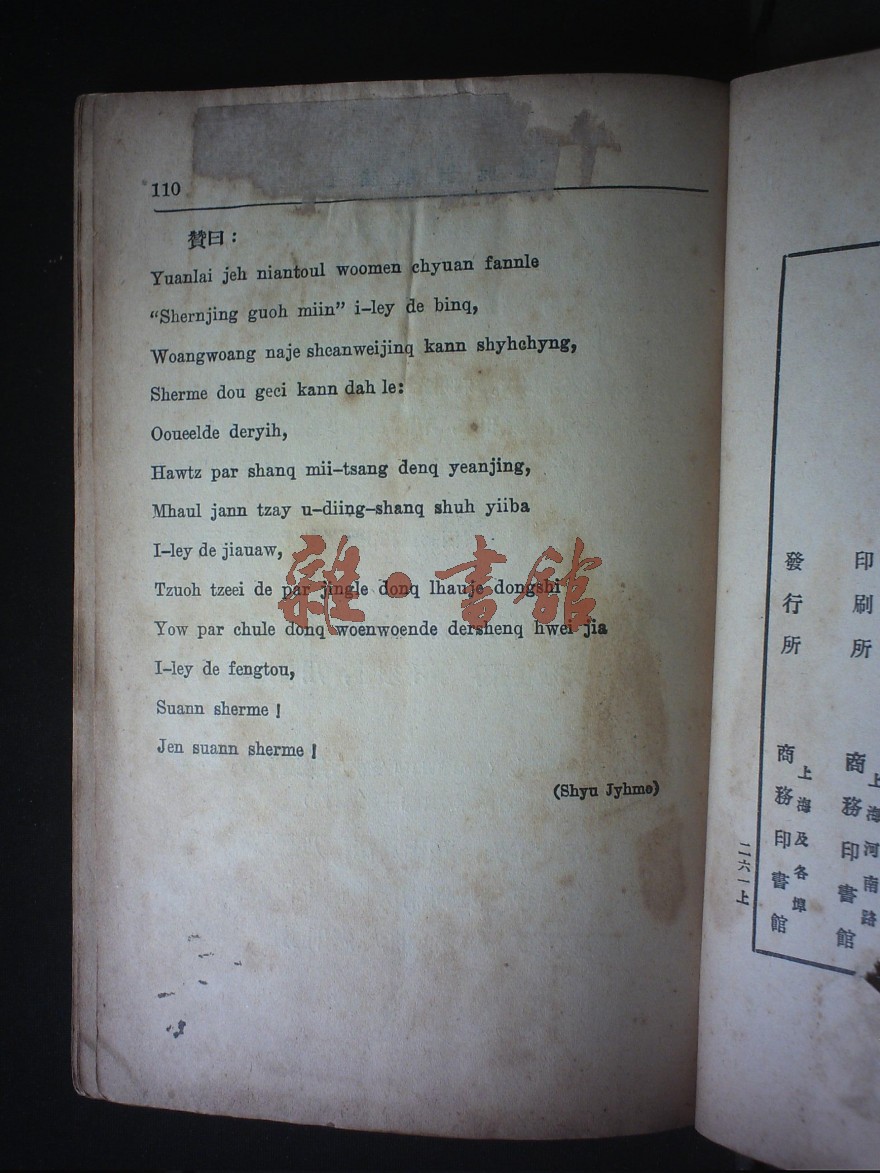 110
贊曰：
Yuanlai jeh niantoul woomen chyuan fannle
“Shernjing guoh miin” i-ley de binq,
Woangwoang naje sheanweijinq kann shyhchyng,
Sherme dou geei kann dah le:
Ooueelde deryih,
Hawtz par shanq mii-tsang denq yeanjing,
Mhaul jann tzay u-diing-shanq shuh yiiba
I-ley de jiauaw,
Tzuoh tzeei de par jingle donq lhauje dongshi
Yow par chule donq woenwoende dershenq hwei jia
I-ley de fengtou,
Suann sherme !
Jen suann sherme !
(Shyu Jyhmo)
雜·書館
印刷所
商務印書館
上海河南路
發行所
商務印書館
上海及各埠
二六一上